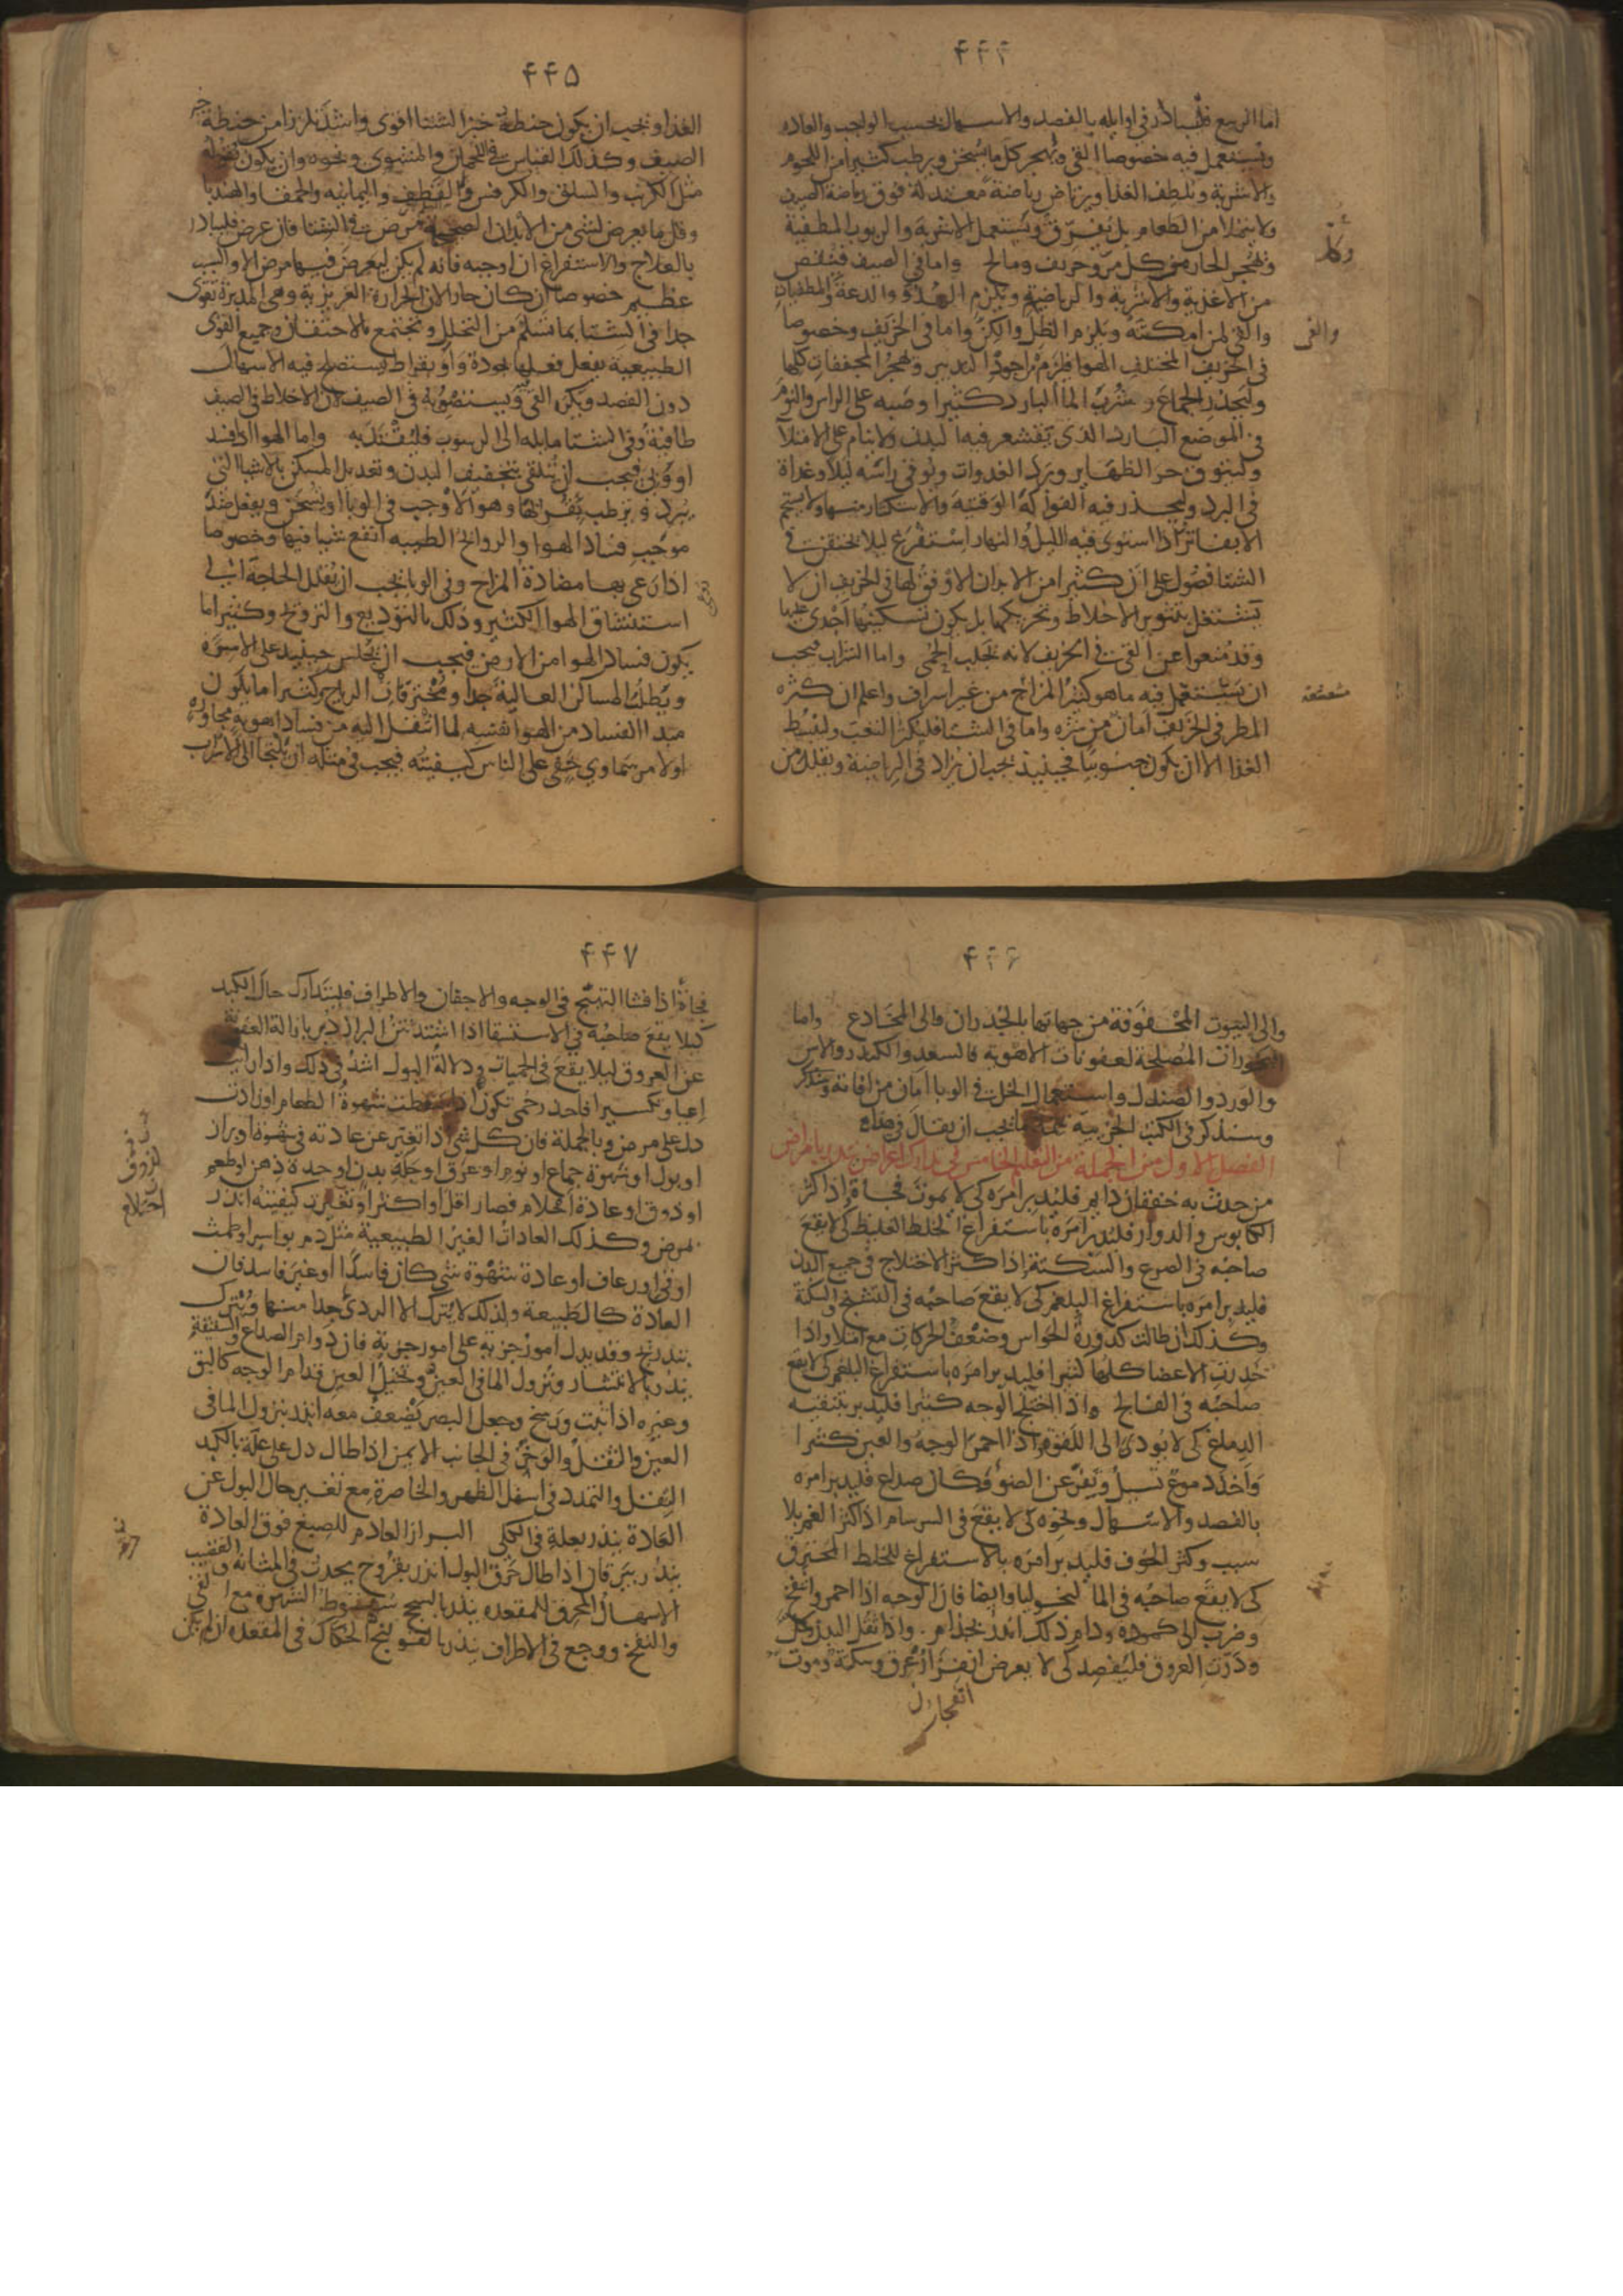 ۴۴۴
اما الربيع فيبادر في اوايله بالفصد والاسهال بحسب الواجب والعادة
ويستعمل فيه خصوصا القي ويهجر كل ما يسخن ويرطب كثيرا من اللحوم
والاشربة ويلطف الغذا ويرتاض رياضة معتدلة فوق رياضة الصيف
ولا يتملا من الطعام بل يفرق ويستعمل الاشربة والربوب المطفية
ويهجر الحار وكل مر وحريف ومالح واما في الصيف فينقص
من الاغذية والاشربة والرياضة ويلزم الهدو والدعة والمطفيات
والقي لمن امكنه ويلزم الظل والكن واما في الخريف وخصوصا
في الخريف المختلف الهوا فيلزم اجود التدبير ويهجر المجففات كلها
وليحذر الجماع وشرب الما البارد كثيرا وصبه على الراس والنوم
في الموضع البارد الذي يقشعر فيه البدن ولا ينام على الامتلا
وليتوق حر الظهاير وبرد الغدوات ويوقي راسه ليلا وغداة
في البرد وليحذر فيه الفواكه الوقتية والاستكثار منها ولا يستحم
الا بفاتر واذا استوى فيه الليل والنهار استفرغ ليلا يحتقن في
الشتا فضول على ان كثيرا من الابدان الاوفق لها في الخريف ان لا
يشتغل بتثوير الاخلاط وتحريكها بل يكون تسكينها اجدى عليها
وقد منعوا عن القي في الخريف لانه يجلب الحمى واما الشراب فيجب
ان يستعمل فيه ما هو كثير المزاج من غير اسراف واعلم ان كثرة
المطر في الخريف امان من شره واما في الشتا فليكثر التعب وليبسط
الغذا الا ان يكون جنوبيا فحينيذ يجب ان يزاد في الرياضة ويقلل من
والقي
۴۴۵
الغذا ويجب ان يكون حنطة خبز الشتا اقوى واشد تلززا من حنطة خبز
الصيف وكذلك القياس في اللحمان والمشوي ونحوه وان يكون بقوله
مثل الكرنب والسلق والكرفس والقطف واليمانية والحمقا والهندبا
وقل ما يعرض لشي من الابدان الصحيحة مرض في الشتا فان عرض فليبادر
بالعلاج والاستفراغ ان اوجبه فانه لم يكن ليعرض فيها مرض الا والسبب
عظيم خصوصا ان كان حارا لان الحرارة الغريزية وهي المدبرة تقوى
جدا في الشتا بما تسلم من التحلل وتجتمع بالاحتقان وجميع القوى
الطبيعية تفعل فعلها بجودة وابقراط يستصلح فيه الاسهال
دون الفصد ويكره القي ويستصوبه في الصيف لان الاخلاط في الصيف
طافية وفي الشتا مايلة الى الرسوب فليقتد به واما الهوا اذا فسد
او وبي فيجب ان يتلقى بتجفيف البدن وتعديل المسكن بالاشيا التي
تبرد وترطب بقوتها وهو الاوجب في الوبا او يسخن ويفعل ضد
موجب فساد الهوا والروايح الطيبة انفع شيا فيها وخصوصا
اذا رعي بها مضادة المزاج وفي الوبا يجب ان يقلل الحاجة الى
استنشاق الهوا الكثير وذلك بالتوديع والترويح وكثيرا ما
يكون فساد الهوا من الارض فيجب ان يجلس حينيذ على الاسرة
ويطلب المساكن العالية جدا ومخترقات الرياح وكثيرا ما يكون
مبدا الفساد من الهوا نفسه لما انتقل اليه من فساد اهوية مجاورة
او لامر سماوي خفي على الناس كيفيته فيجب في مثله ان يلتجا الى الاسراب
۴۴۶
والى البيوت المحفوفة من جهاتها بالجدران والى المخادع واما
البخورات المصلحة لعفونات الاهوية فالسعد والكندر والاس
والورد والصندل واستعمال الخل في الوبا امان من افاته
وسنذكر في الكتب الجزيية ما يجب ان يقال في هذا
الفصل الاول من الجملة من التعليم الخامس في تدارك اعراض تنذر بامراض
من حدث به خفقان دايم فليدبر امره كي لا يموت فجاة واذا كثر
الكابوس والدوار فليدبر امره باستفراغ الخلط الغليظ كي لا يقع
صاحبه في الصرع والسكتة واذا كثر الاختلاج في جميع البدن
فليدبر امره باستفراغ البلغم كي لا يقع صاحبه في التشنج والسكتة
وكذلك ان طالت كدورة الحواس وضعف الحركات مع امتلا واذا
خدرت الاعضا كلها كثيرا فليدبر امره باستفراغ البلغم كي لا يقع
صاحبه في الفالج واذا اختلج الوجه كثيرا فليدبر بتنقية
الدماغ كي لا يودي الى اللقوة واذا احمر الوجه والعين كثيرا
واخذ دموع تسيل ويفر عن الضو وكان صداع فليدبر امره
بالفصد والاسهال ونحوه كي لا يقع في السرسام اذا كثر الغم بلا
سبب وكثر الخوف فليدبر امره بالاستفراغ للخلط المحترق
كي لا يقع صاحبه في المالنخوليا وايضا فان الوجه اذا احمر وانتفخ
وضرب الى كمودة ودام ذلك انذر بجذام واذا ثقل البدن وكل
ودرت العروق فليفصد كي لا يعرض انفزار عرق وسكتة وموت
انفجار
۴۴۷
فجاة اذا فشا التهيج في الوجه والاجفان والاطراف فليتدارك حال الكبد
كيلا يقع صاحبه في الاستسقا اذا اشتد نتن البراز دبر بازالة العفونة
عن العروق ليلا يقع في الحميات ودلالة البول اشد في ذلك واذا رايت
اعيا وتكسيرا فاحدر حمى تكون اذا سقطت شهوة الطعام او زادت
دل على مرض وبالجملة فان كل شي اذا تغير عن عادته في شهوة او براز
او بول او شهوة جماع او نوم او عرق او حكة بدن او حدة ذهن او طعم
او ذوق او عادة احلام فصار اقل او اكثر او تغيرت كيفيته انذر
بمرض وكذلك العادات الغير الطبيعية مثل دم بواسير او طمث
او قي او رعاف او عادة شهوة شي كان فاسدا او غير فاسد فان
العادة كالطبيعة ولذلك لا يترك الا الردي جدا منها ويترك
بتدريج وقد يدل امور جزية على امور جزية فان دوام الصداع والشقيقة
ينذر بالانتشار ونزول الما في العين وتخيل العين قدام الوجه كالبق
وغيره اذا ثبت ورسخ وجعل البصر يضعف معه انذر بنزول الما في
العين والثقل والوخز في الجانب الايمن اذا طال دل على علة بالكبد
الثقل والتمدد في اسفل الظهر والخاصرة مع تغير حال البول عن
العادة ينذر بعلة في الكلى البراز العادم للصبغ فوق العادة
ينذر بيرقان اذا طال حرق البول انذر بقروح يحدث في المثانة والقضيب
الاسهال المحرق للمقعدة ينذر بالسحج سقوط الشهوة مع القي
والنفخ ووجع في الاطراف ينذر بالقولنج الحكاك في المقعدة ان لم يكن
احتلام